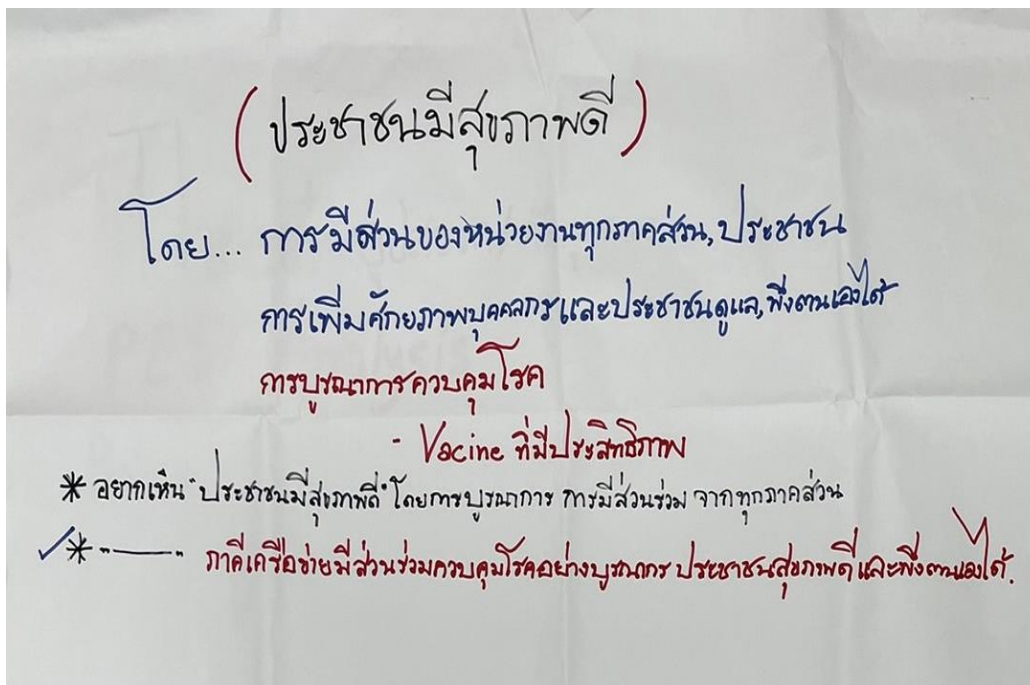 (ประชาชนมีสุขภาพดี)
โดย... การมีส่วนของหน่วยงานทุกภาคส่วน, ประชาชน
การเพิ่มศักยภาพบุคคลกรและประชาชนดูแล, พึ่งตนเองได้
การบูรณาการควบคุมโรค
- Vacine ที่มีประสิทธิภาพ
* อยากเห็น "ประชาชนมีสุขภาพดี" โดยการบูรณาการ การมีส่วนร่วม จากทุกภาคส่วน
✓* "——" ภาคีเครือข่ายมีส่วนร่วมควบคุมโรคอย่างบูรณาการ ประชาชนสุขภาพดีและพึ่งตนเองได้.